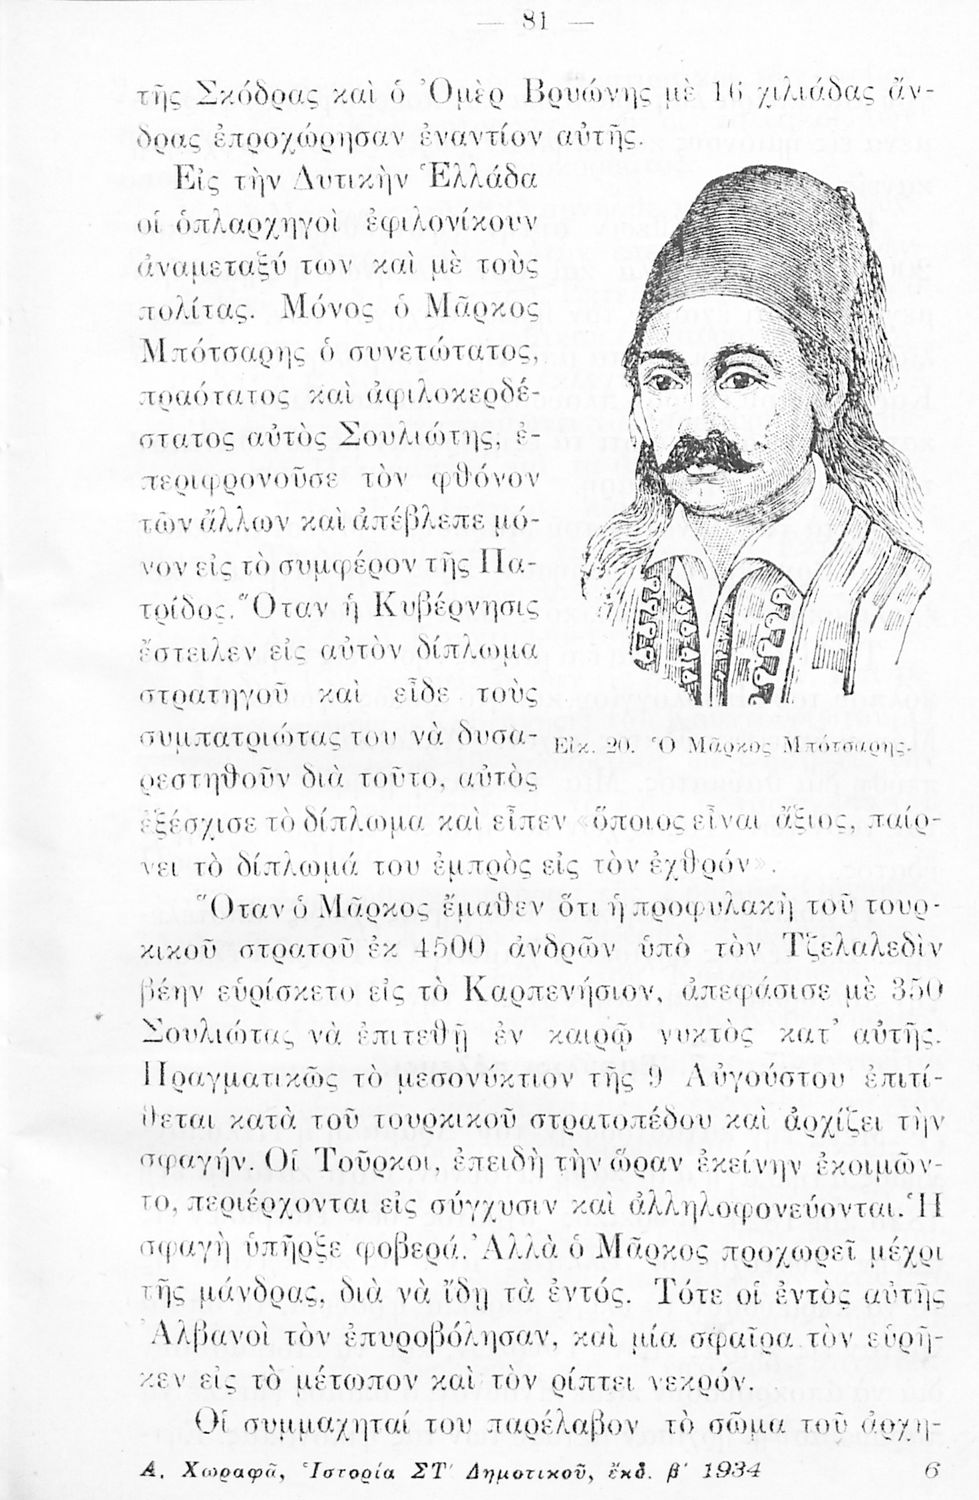 — 81 —
τῆς Σκόδρας καὶ ὁ Ὀμὲρ Βρυώνης μὲ 16 χιλιάδας ἄν-
δρας ἐπροχώρησαν ἐναντίον αὐτῆς.
Εἰς τὴν Δυτικὴν Ἑλλάδα
οἱ ὁπλαρχηγοὶ ἐφιλονίκουν
ἀναμεταξύ των καὶ μὲ τοὺς
πολίτας. Μόνος ὁ Μᾶρκος
Μπότσαρης ὁ συνετώτατος,
πραότατος καὶ ἀφιλοκερδέ-
στατος αὐτὸς Σουλιώτης, ἐ-
περιφρονοῦσε τὸν φθόνον
τῶν ἄλλων καὶ ἀπέβλεπε μό-
νον εἰς τὸ συμφέρον τῆς Πα-
τρίδος. Ὅταν ἡ Κυβέρνησις
ἔστειλεν εἰς αὐτὸν δίπλωμα
στρατηγοῦ καὶ εἶδε τοὺς
συμπατριώτας του νὰ δυσα-
ρεστηθοῦν διὰ τοῦτο, αὐτὸς
ἐξέσχισε τὸ δίπλωμα καὶ εἶπεν «ὅποιος εἶναι ἄξιος, παίρ-
νει τὸ δίπλωμά του ἐμπρὸς εἰς τὸν ἐχθρόν».
Εἰκ. 20. Ὁ Μᾶρκος Μπότσαρης.
Ὅταν ὁ Μᾶρκος ἔμαθεν ὅτι ἡ προφυλακὴ τοῦ τουρ-
κικοῦ στρατοῦ ἐκ 4500 ἀνδρῶν ὑπὸ τὸν Τζελαλεδὶν
βέην εὑρίσκετο εἰς τὸ Καρπενήσιον, ἀπεφάσισε μὲ 350
Σουλιώτας νὰ ἐπιτεθῇ ἐν καιρῷ νυκτὸς κατ’ αὐτῆς.
Πραγματικῶς τὸ μεσονύκτιον τῆς 9 Αὐγούστου ἐπιτί-
θεται κατὰ τοῦ τουρκικοῦ στρατοπέδου καὶ ἀρχίζει τὴν
σφαγήν. Οἱ Τοῦρκοι, ἐπειδὴ τὴν ὥραν ἐκείνην ἐκοιμῶν-
το, περιέρχονται εἰς σύγχυσιν καὶ ἀλληλοφονεύονται. Ἡ
σφαγὴ ὑπῆρξε φοβερά. Ἀλλὰ ὁ Μᾶρκος προχωρεῖ μέχρι
τῆς μάνδρας, διὰ νὰ ἴδῃ τὰ ἐντός. Τότε οἱ ἐντὸς αὐτῆς
Ἀλβανοὶ τὸν ἐπυροβόλησαν, καὶ μία σφαῖρα τὸν εὑρῆ-
κεν εἰς τὸ μέτωπον καὶ τὸν ρίπτει νεκρόν.
Οἱ συμμαχηταί του παρέλαβον τὸ σῶμα τοῦ ἀρχη-
Α. Χωραφᾶ, Ἱστορία ΣΤ' Δημοτικοῦ, ἔκδ. β' 1934 6